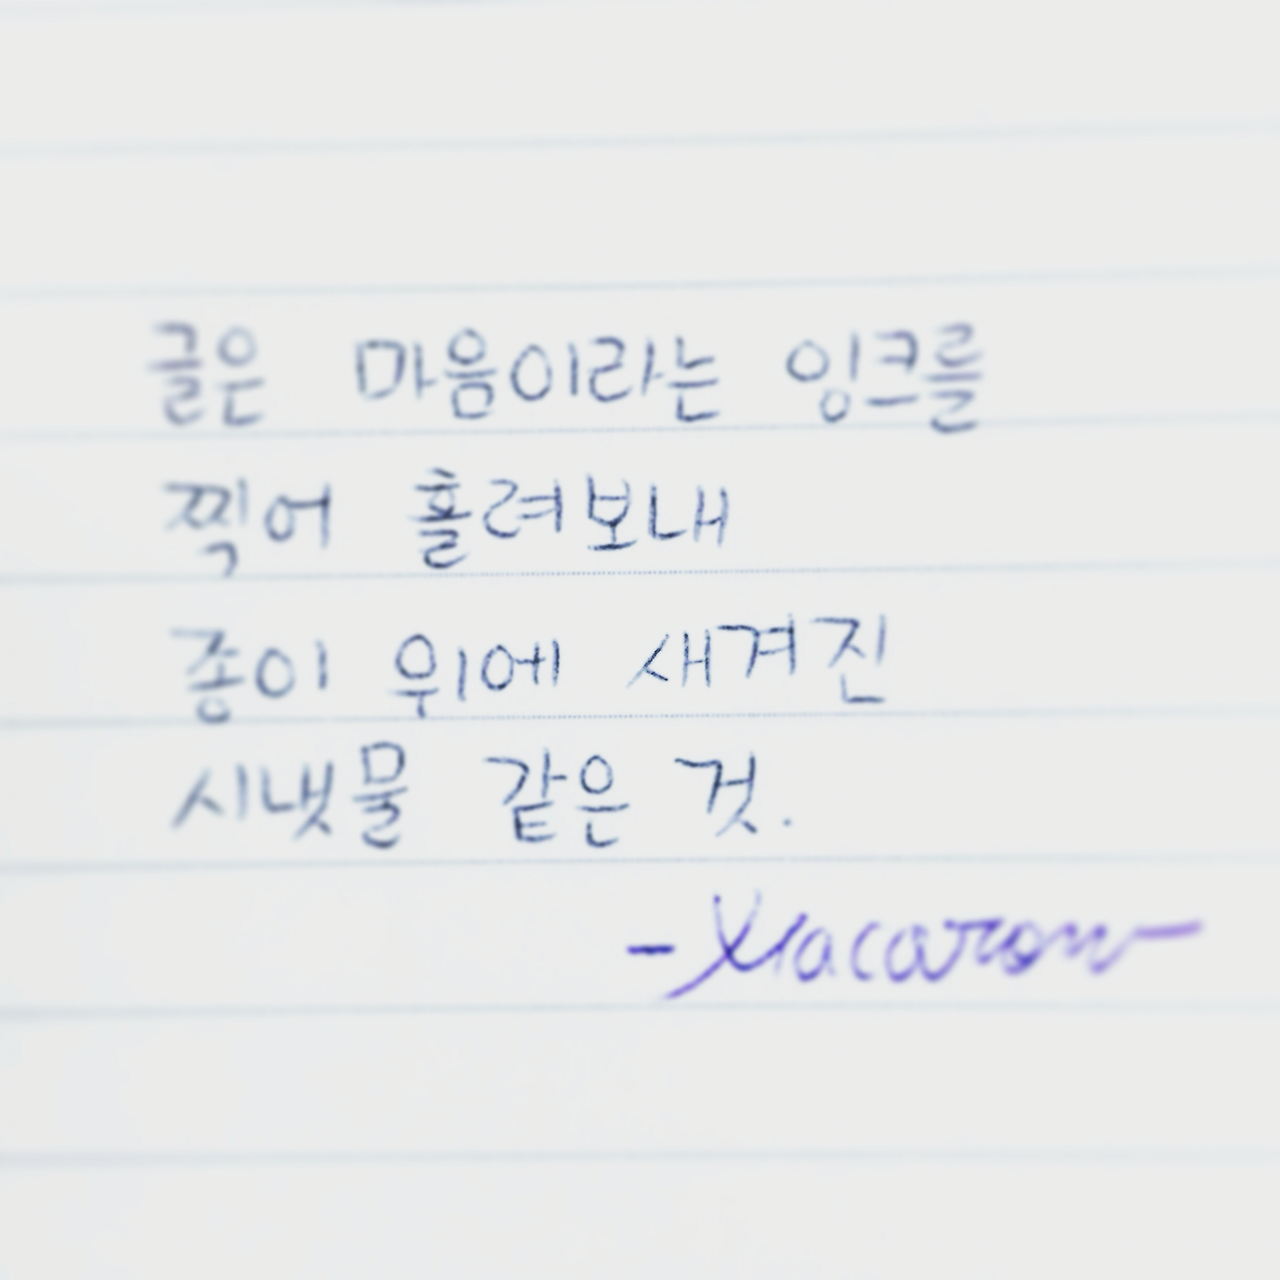 글은 마음이라는 잉크를
찍어 흘려보내
종이 위에 새겨진
시냇물 같은 것.
-Macaron-